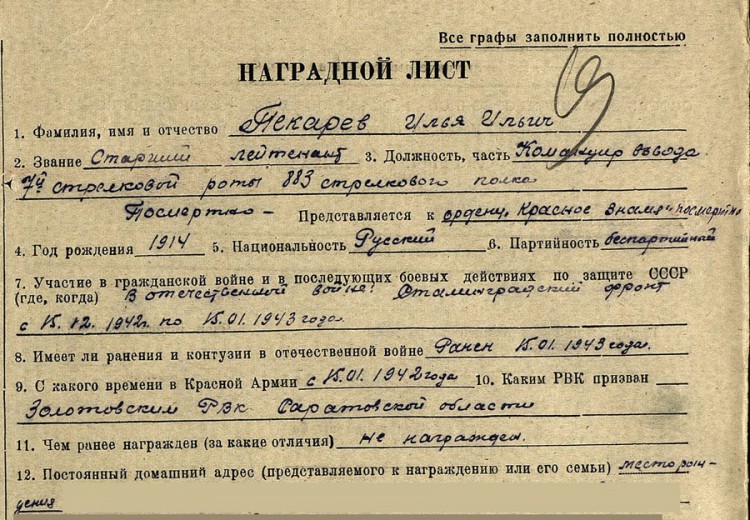 Все графы заполнить полностью
НАГРАДНОЙ ЛИСТ
1. Фамилия, имя и отчество Пекарев Илья Ильич
2. Звание Старший лейтенант 3. Должность, часть Командир взвода
7й стрелковой роты 883 стрелкового полка
Посмертно – Представляется к ордену „Красное Знамя" посмертно
4. Год рождения 1914 5. Национальность Русский 6. Партийность беспартийный
7. Участие в гражданской войне и в последующих боевых действиях по защите СССР
(где, когда) В отечественной войне: Сталинградский фронт
с 15.12.1942г. по 15.01.1943 года.
8. Имеет ли ранения и контузии в отечественной войне Ранен 15.01.1943 года.
9. С какого времени в Красной Армии с 15.01.1942 года 10. Каким РВК призван
Золотовским РВК Саратовской области
11. Чем ранее награжден (за какие отличия) не награжден.
12. Постоянный домашний адрес (представляемого к награждению или его семьи) место рож-
дения